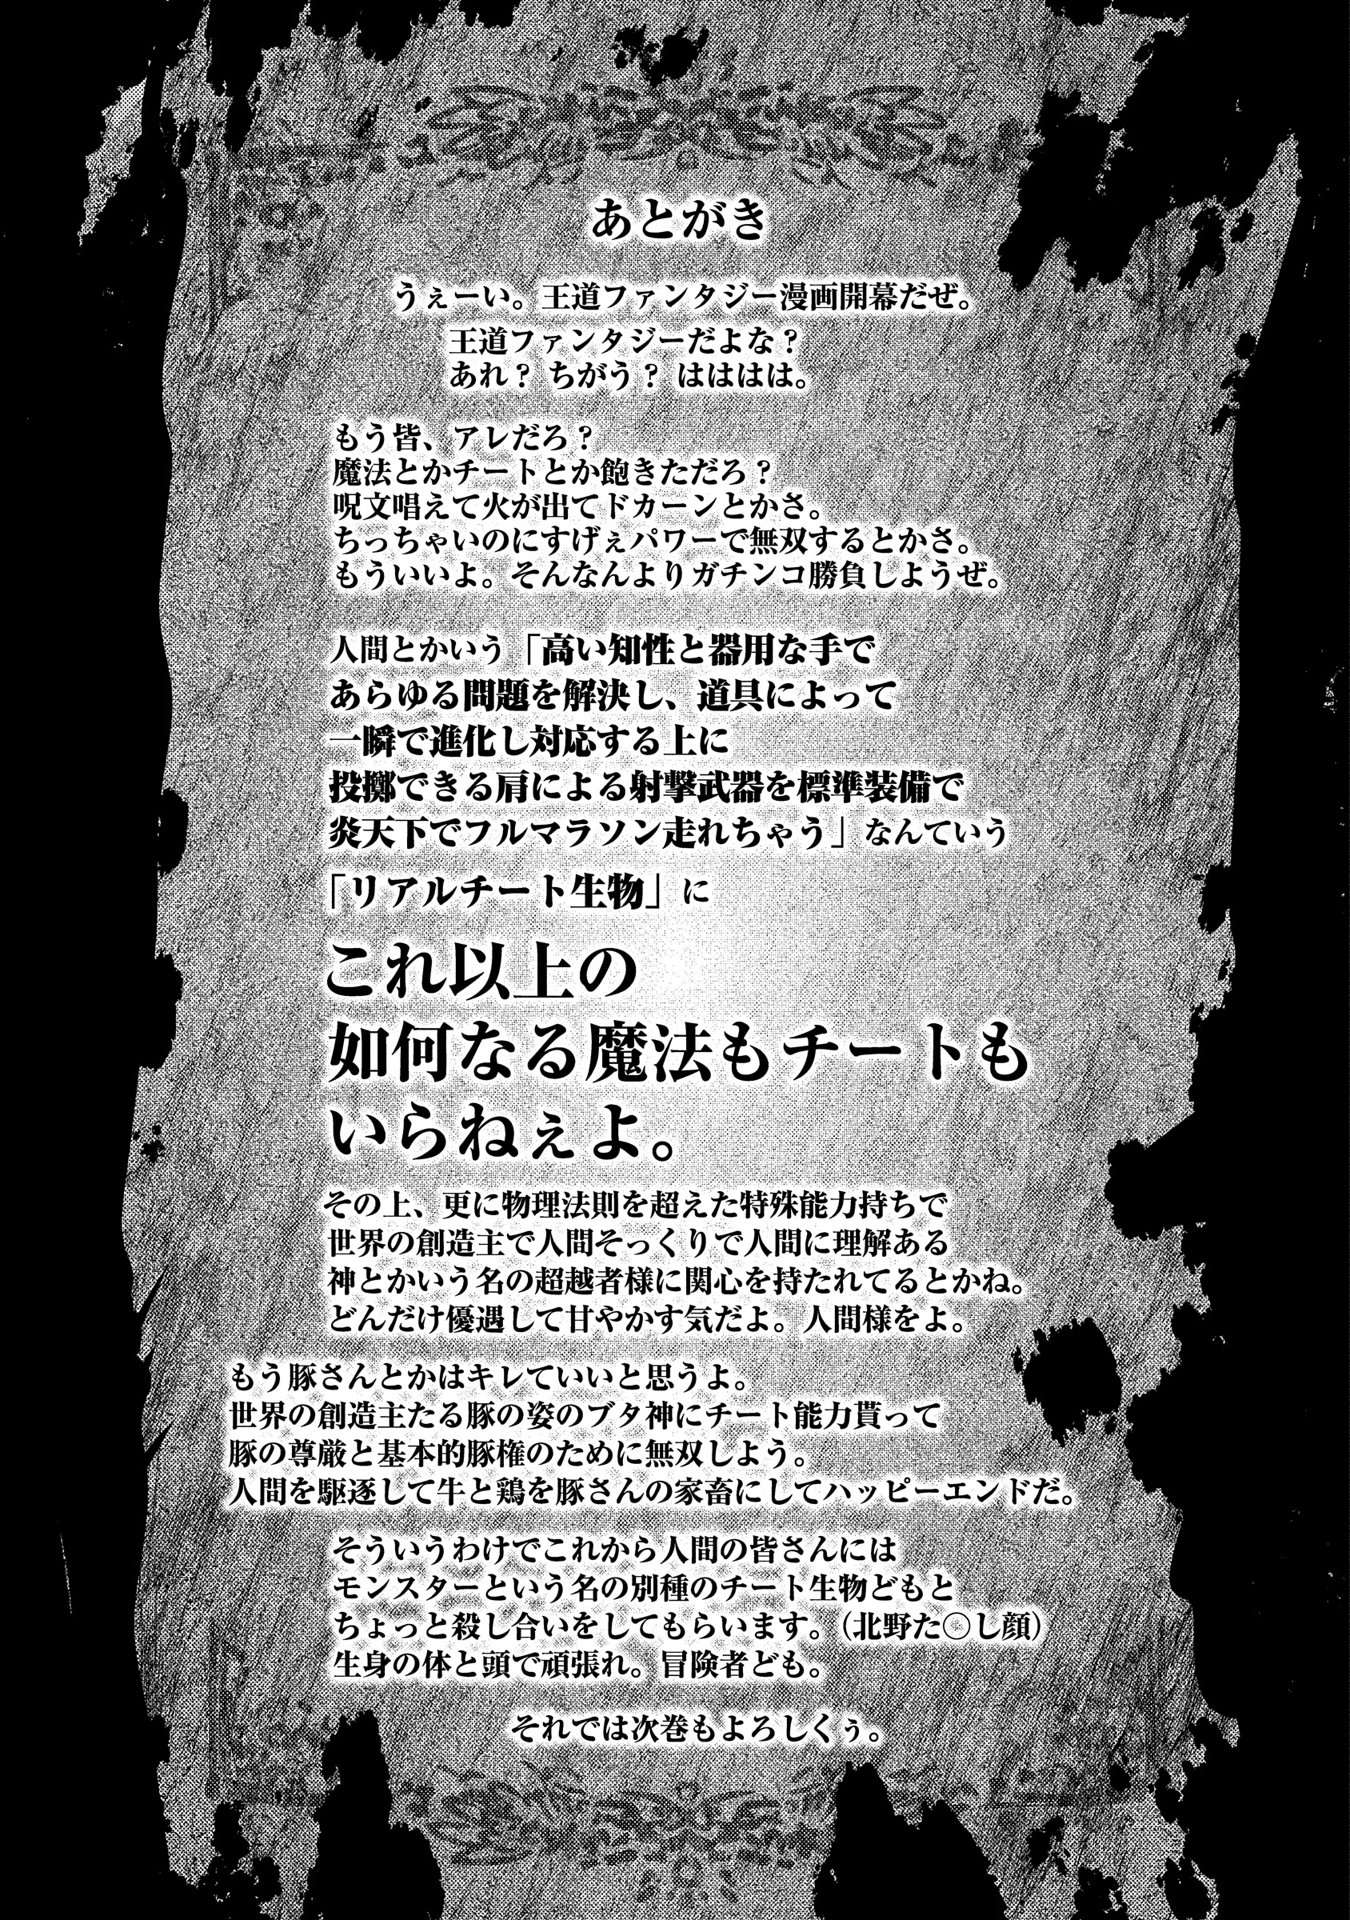 あとがき
うぇーい。王道ファンタジー漫画開幕だぜ。
王道ファンタジーだよな？
あれ？ ちがう？ はははは。
もう皆、アレだろ？
魔法とかチートとか飽きただろ？
呪文唱えて火が出てドカーンとかさ。
ちっちゃいのにすげぇパワーで無双するとかさ。
もういいよ。そんなんよりガチンコ勝負しようぜ。
人間とかいう「高い知性と器用な手で
あらゆる問題を解決し、道具によって
一瞬で進化し対応する上に
投擲できる肩による射撃武器を標準装備で
炎天下でフルマラソン走れちゃう」なんていう
「リアルチート生物」に
これ以上の
如何なる魔法もチートも
いらねぇよ。
その上、更に物理法則を超えた特殊能力持ちで
世界の創造主で人間そっくりで人間に理解ある
神とかいう名の超越者様に関心を持たれてるとかね。
どんだけ優遇して甘やかす気だよ。人間様をよ。
もう豚さんとかはキレていいと思うよ。
世界の創造主たる豚の姿のブタ神にチート能力貰って
豚の尊厳と基本的豚権のために無双しよう。
人間を駆逐して牛と鶏を豚さんの家畜にしてハッピーエンドだ。
そういうわけでこれから人間の皆さんには
モンスターという名の別種のチート生物どもと
ちょっと殺し合いをしてもらいます。（北野た〇し顔）
生身の体と頭で頑張れ。冒険者ども。
それでは次巻もよろしくぅ。